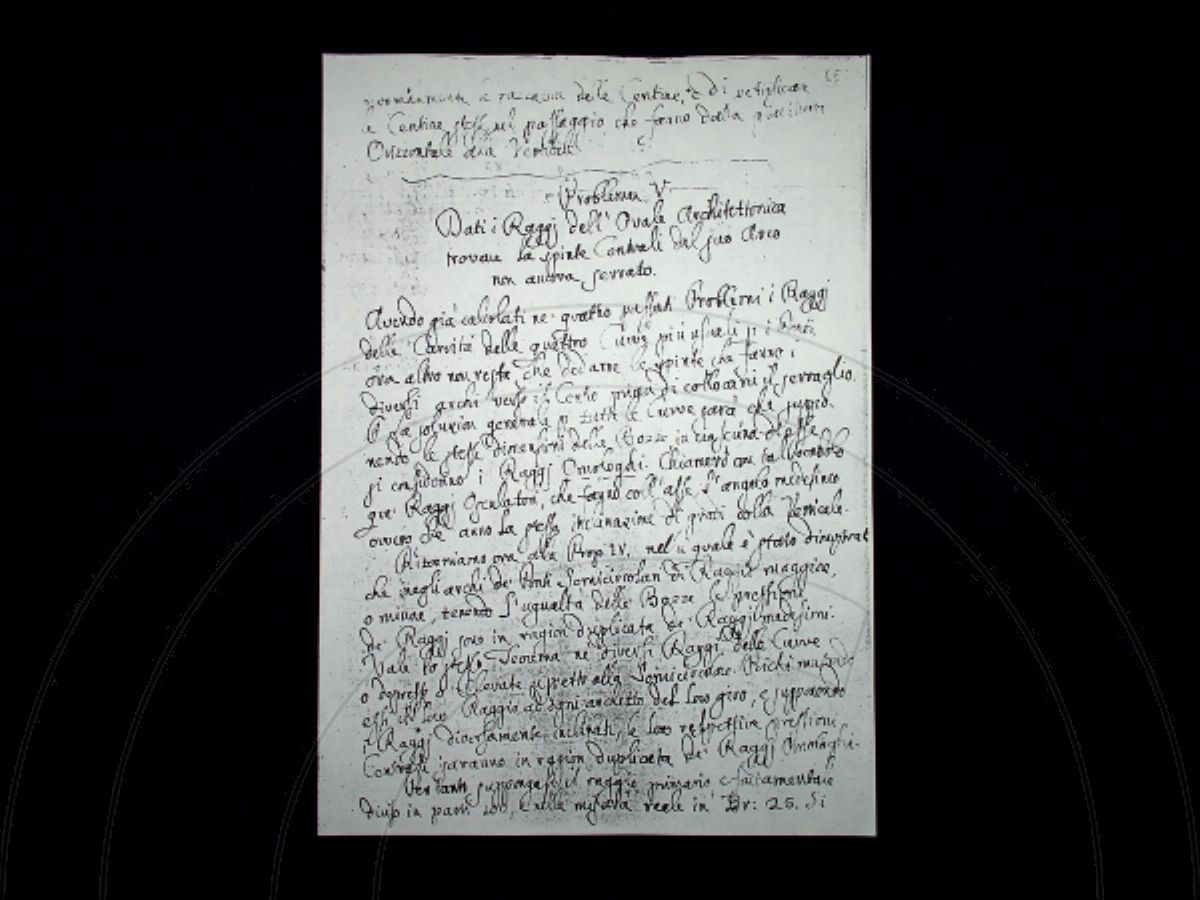 15
delle Centine, e di
le Centine stesse nel passaggio, che fanno dalla
Orizzontale alla Verticale
Problema V
Dati i Raggj dell' Ovale Architettonica
trovare le spinte Centrali del suo Arco
non ancora serrato.
Avendo già calcolati ne' quattro passati Problemi i Raggj
delle Curvità delle quattro Curve più usuali p i Ponti
ora altro non resta, che dedurre le spinte che fanno i
diversi archi verso il Centro prima di collocarvi il serraglio.
La soluzion generale p tutte le Curve sarà che suppo-
nendo le stesse dimensioni delle Bozze in ciascuna di esse
si considerino i Raggj Omologhi. Chiamerò con tal vocabolo
que' Raggj Osculatori, che fanno coll' asse l' angolo medesimo
ovvero che anno la stessa inclinazione di gradi colla Verticale.
Ritorniamo ora alla Prop. IV. nel quale è stato dimostrat
che negli archi de' Ponti Semicircolari di Raggio maggiore,
o minore, tenendo l' ugualtà delle Bozze le pressioni
de' Raggj sono in ragion duplicata de' Raggj medesimi.
Vale lo stesso Teorema ne' diversi Raggj delle Curve
o depresse o elevate rispetto alla Semicircolare. Poichè mutando
esse il loro Raggio ad ogni archetto del loro giro, e supponendo
i Raggj diversamente inclinati, le loro rispettive pressioni
Centrali saranno in ragion duplicata de' Raggj Omologhi.
Per tanto suppongasi il raggio primario e fondamentale
diviso in parti 100, e nella misura reale in Br: 25. Si